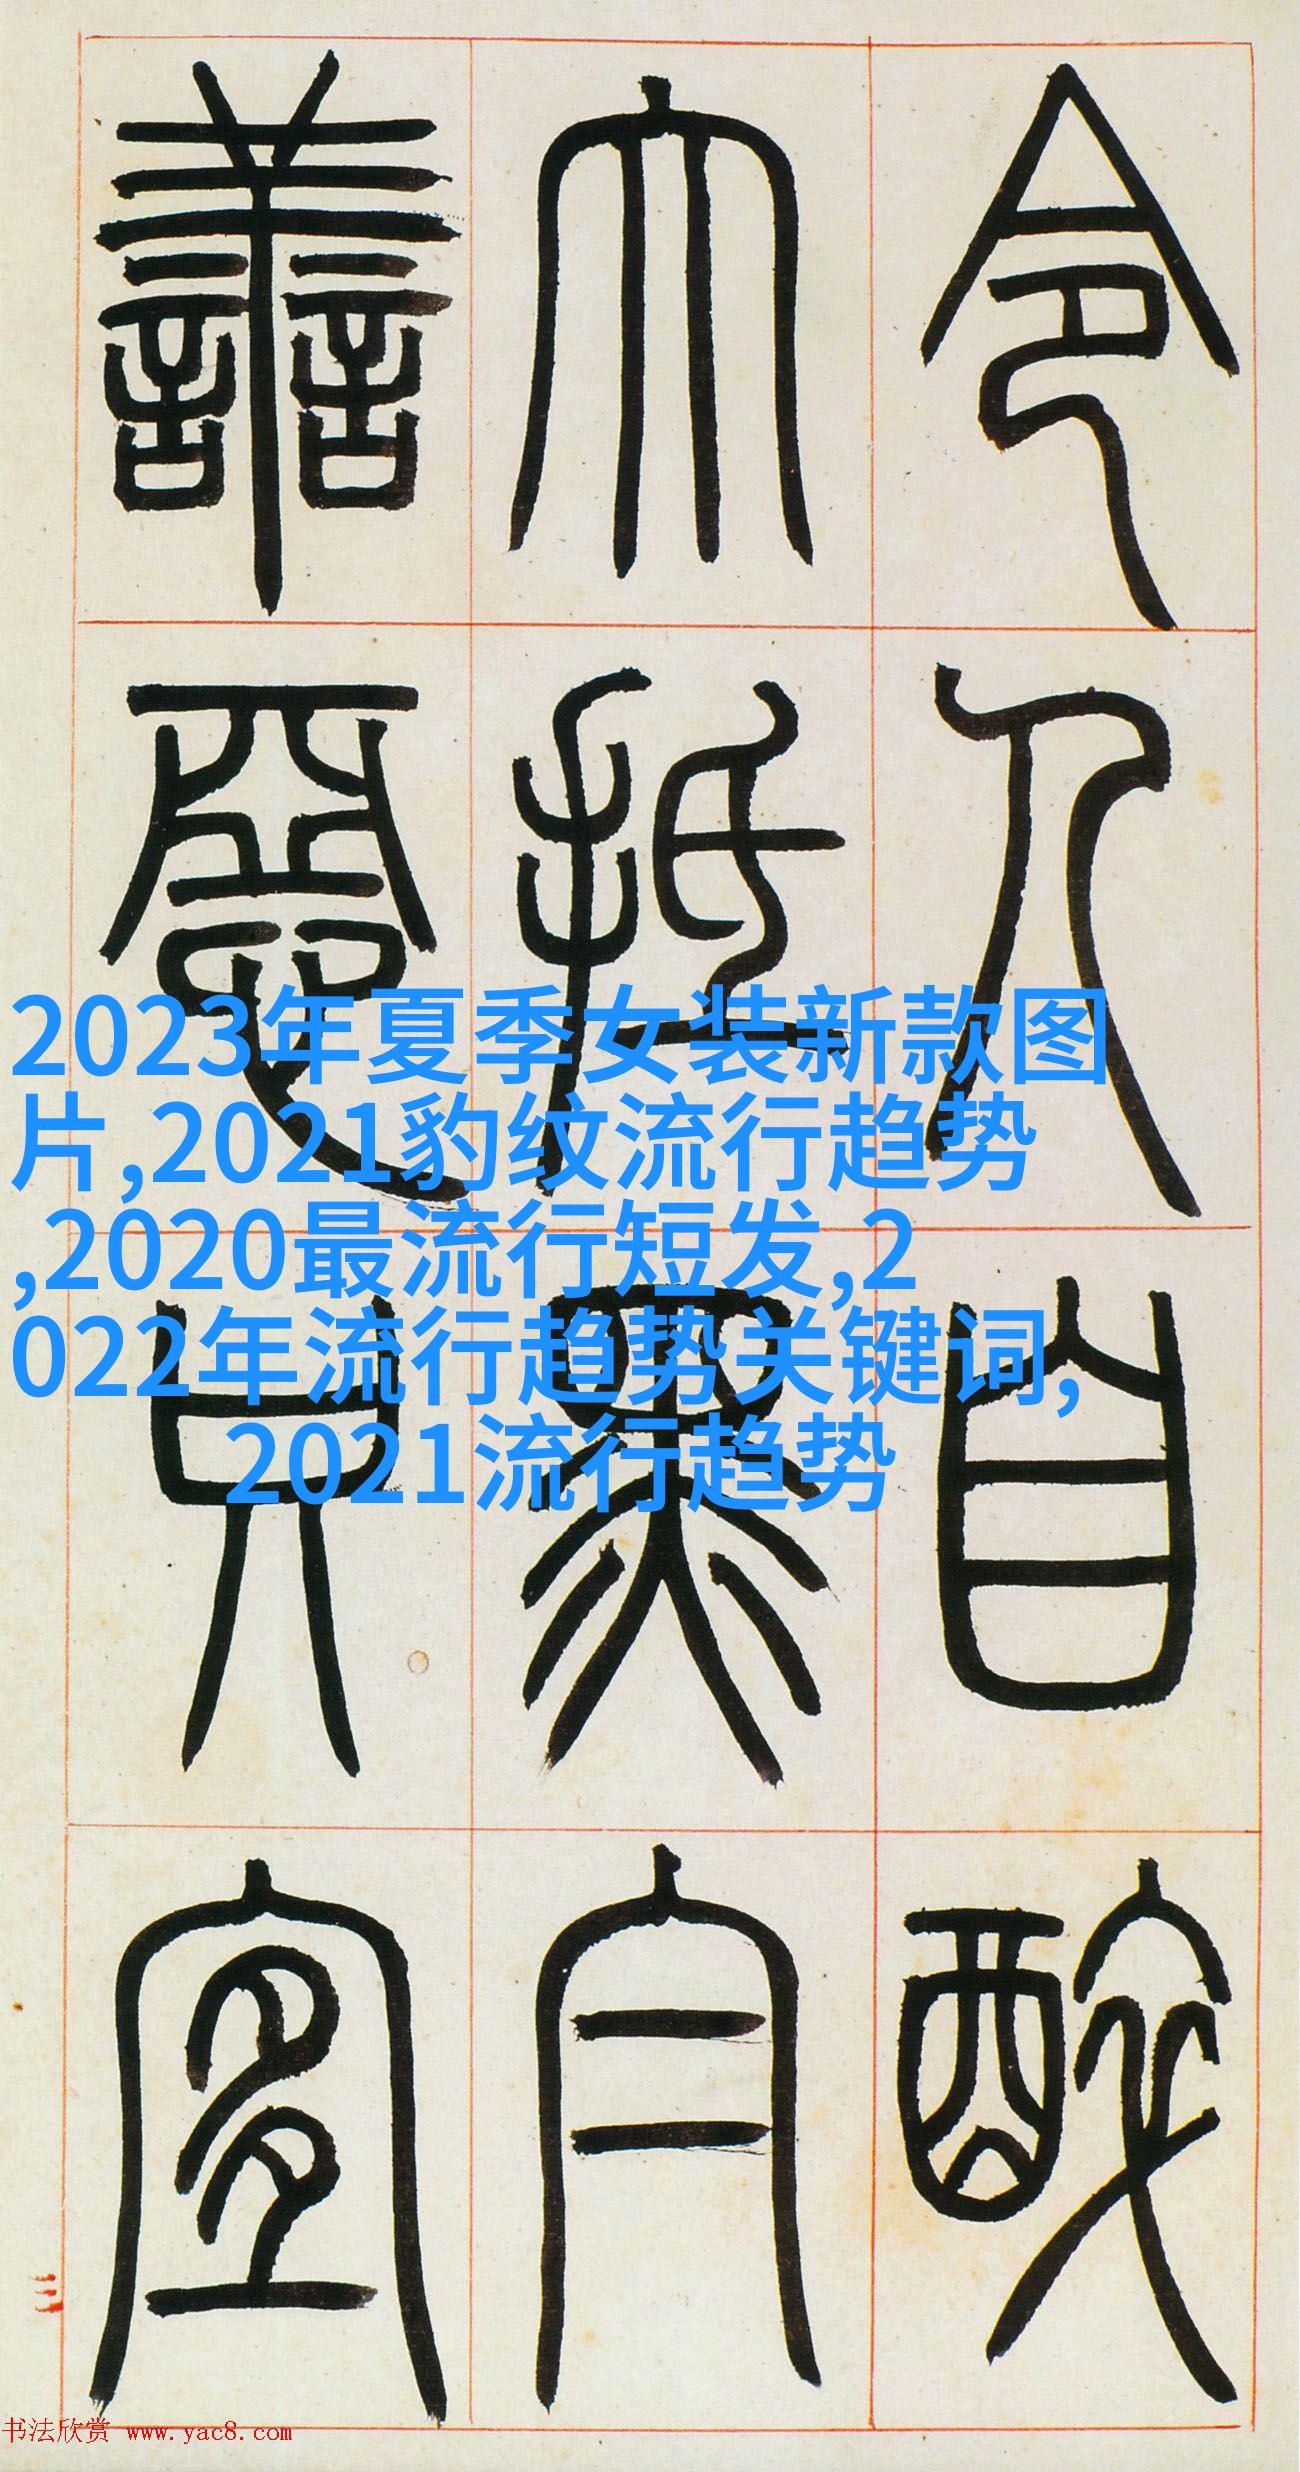 令人自醉
大抵黑白
善惡只宜
2023年夏季女装新款图
片,2021豹纹流行趋势
,2020最流行短发,2
022年流行趋势关键词,
2021流行趋势
三
书法欣赏 www.yac8.com